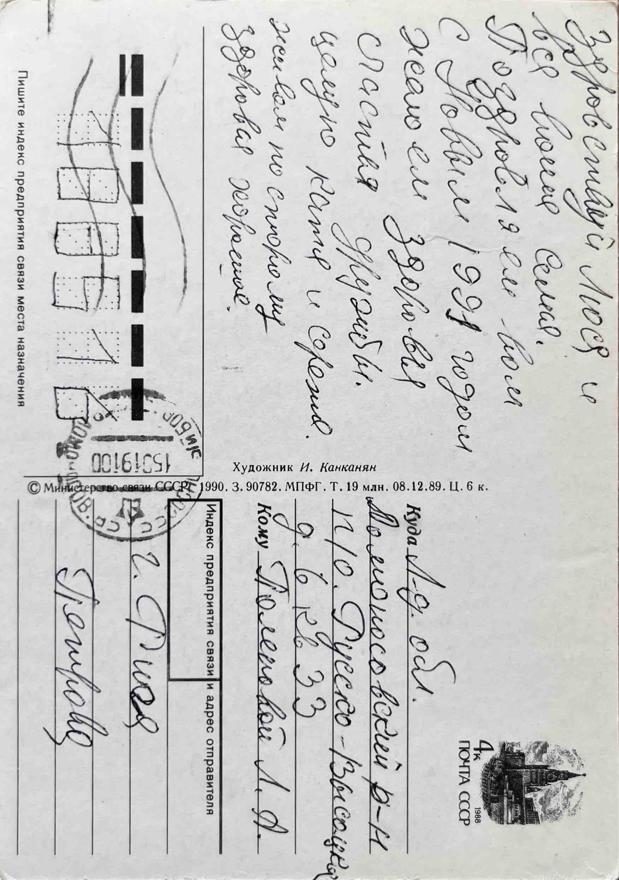 Здровствуй Люся и
вся юная семья.
Поздровляем вам
с Новым 1991 годом
желаем здоровья
счастия дружбы.
целую катя и сережа.
живем по старому
здоровья хорошее.
Пишите индекс предприятия связи места назначения
15019100
Художник И. Канканян
© Министерство связи СССР, 1990. З. 90782. МПФГ. Т. 19 млн. 08.12.89. Ц. 6 к.
4к
ПОЧТА СССР
1988
Куда Л-д. обл.
Ломоносовский р-н
п/о. Русско-Высоцкое
д. 6 кв 33
Кому Л. А.
Индекс предприятия связи и адрес отправителя
г.